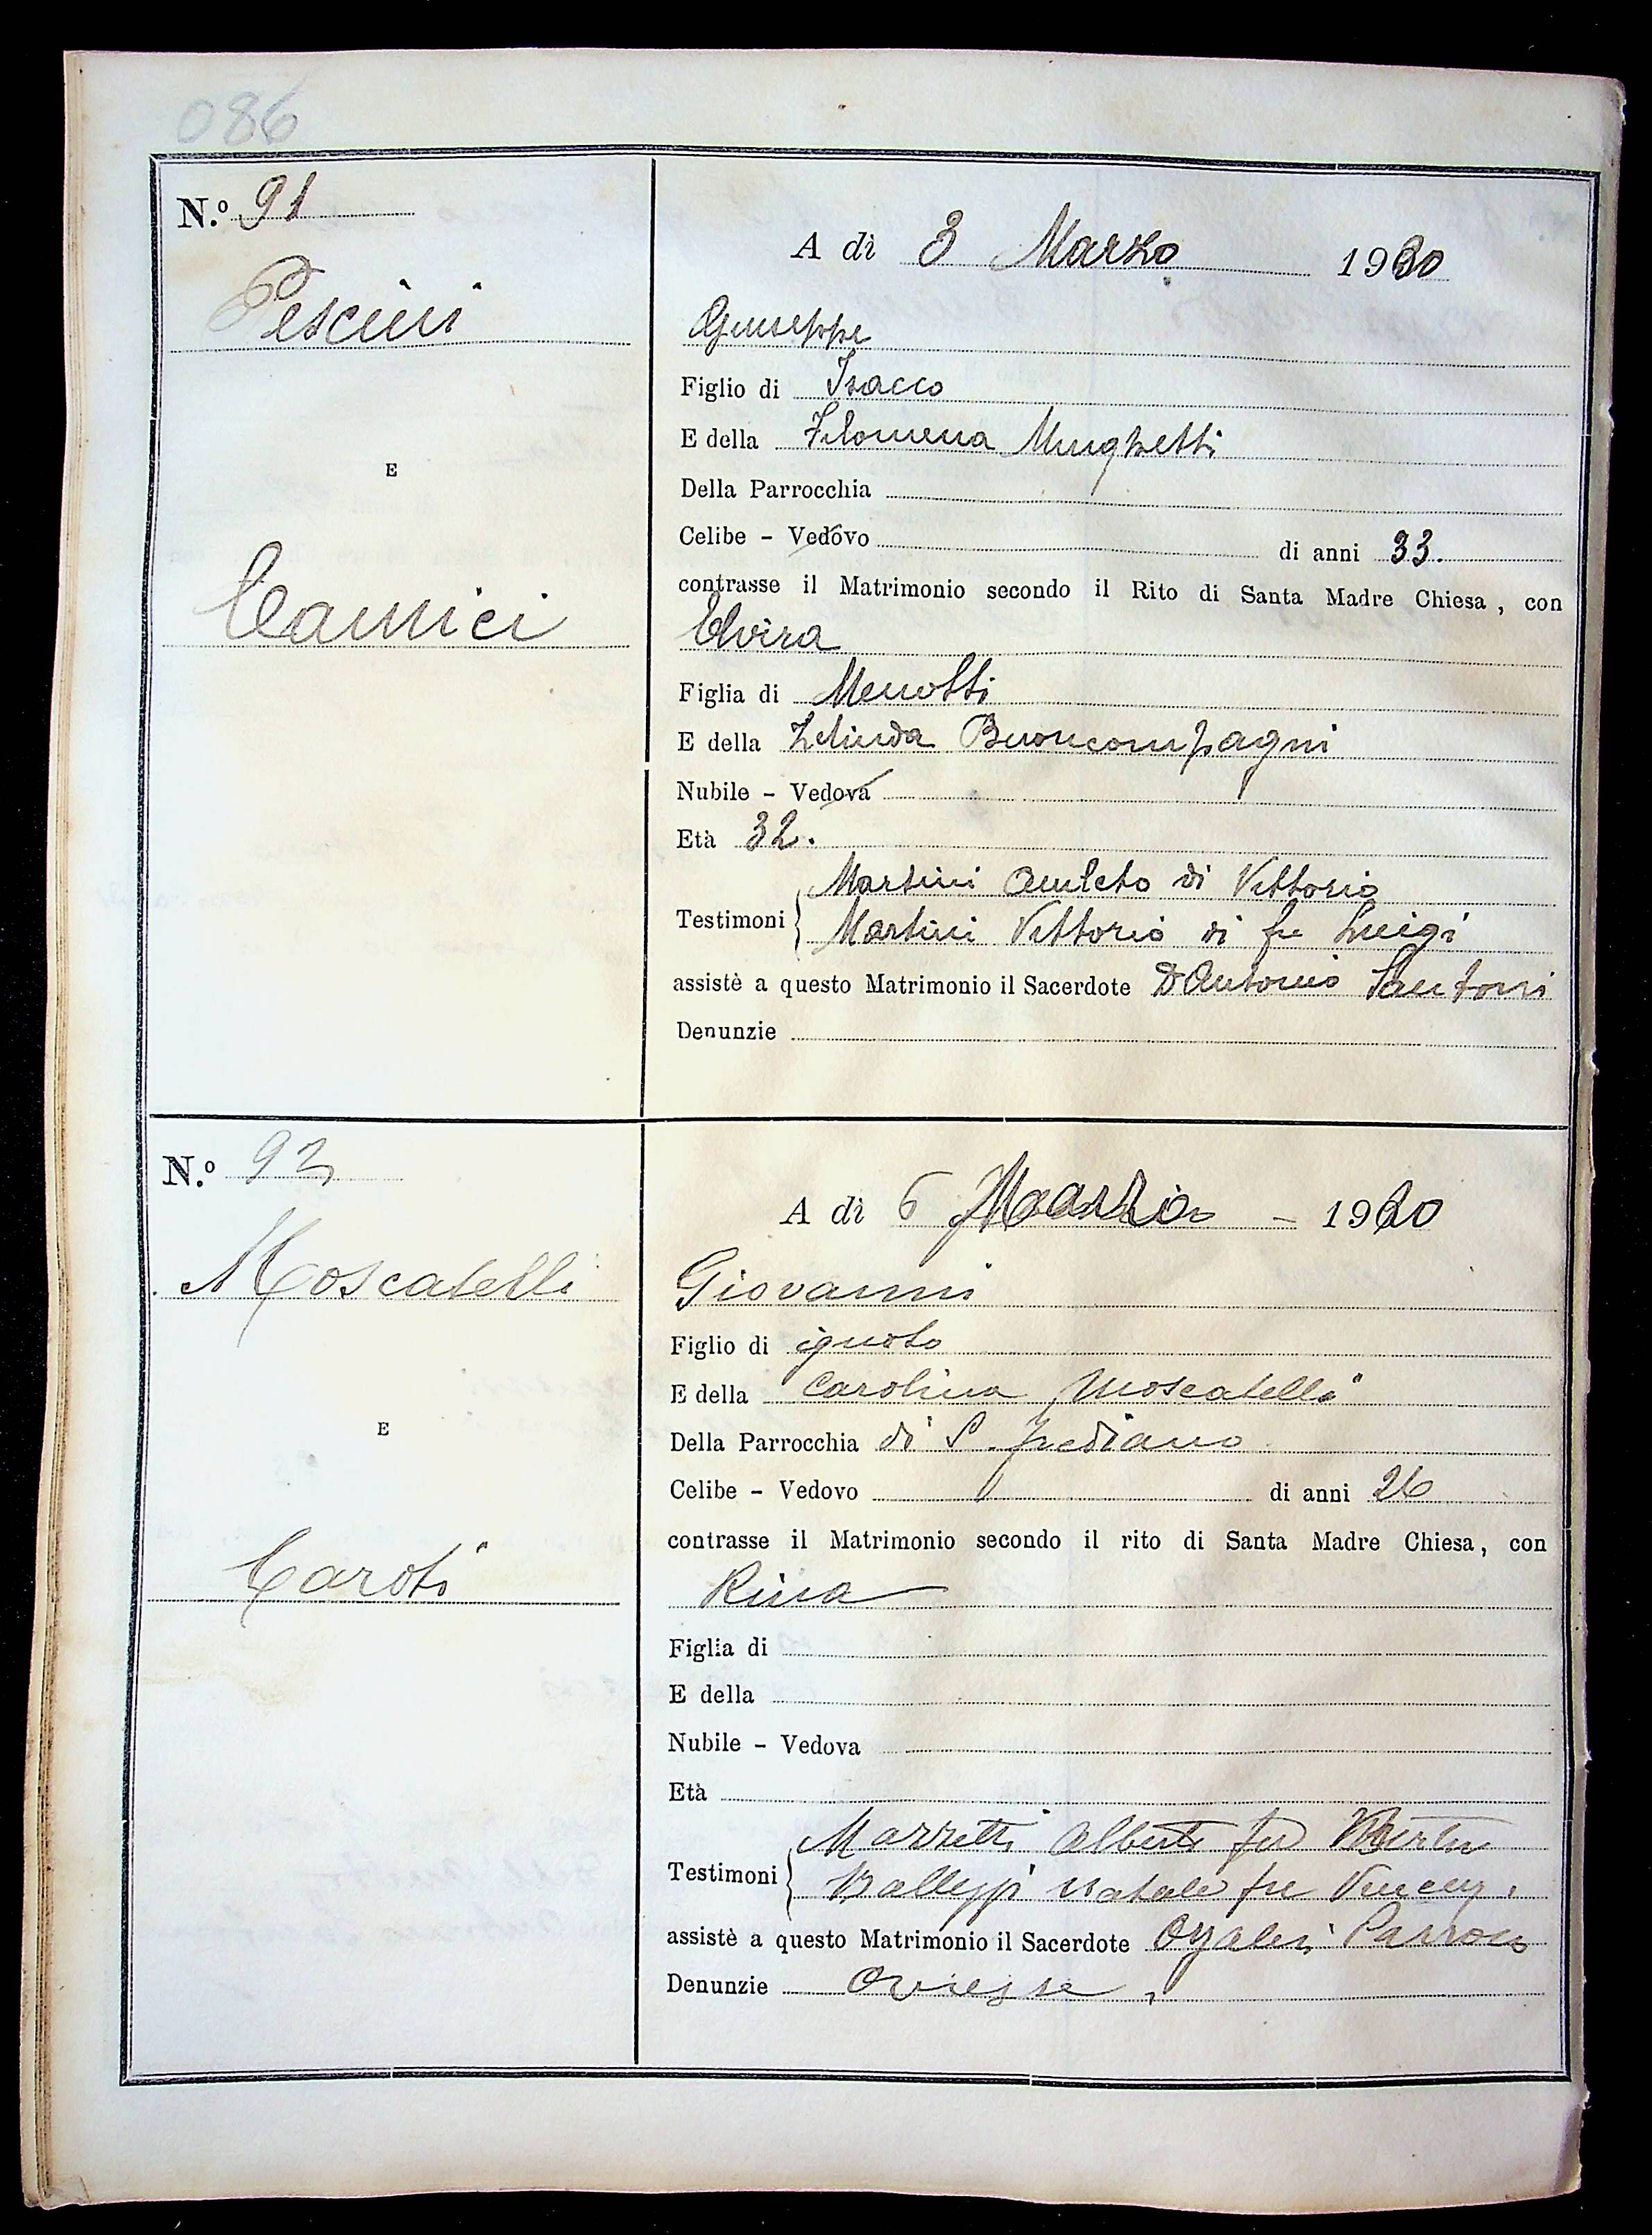 086
N.º 91
A dì 3 Marzo 1930
Pescini
Giuseppe
Figlio di Isacco
E della Filomena Mughetti
E
Della Parrocchia
Celibe - Vedovo di anni 33.
contrasse il Matrimonio secondo il Rito di Santa Madre Chiesa, con
Camici
Elvira
Figlia di Menotti
E della Zelinda Buoncompagni
Nubile - Vedova
Età 32.
Martini Amleto di Vittorio
Testimoni
Martini Vittorio di fu Luigi
assistè a questo Matrimonio il Sacerdote D Antonio Santoni
Denunzie
N.º 92
A dì 6 Marzo - 1930
Moscatelli
Giovanni
Figlio di ignoto
E della Carolina Moscatelli
E
Della Parrocchia di S. Frediano
Celibe - Vedovo di anni 26
contrasse il Matrimonio secondo il rito di Santa Madre Chiesa, con
Caroti
Rina
Figlia di
E della
Nubile - Vedova
Età
Mazzetti Alberto fu
Testimoni
Natale fu
assistè a questo Matrimonio il Sacerdote Parroco
Denunzie